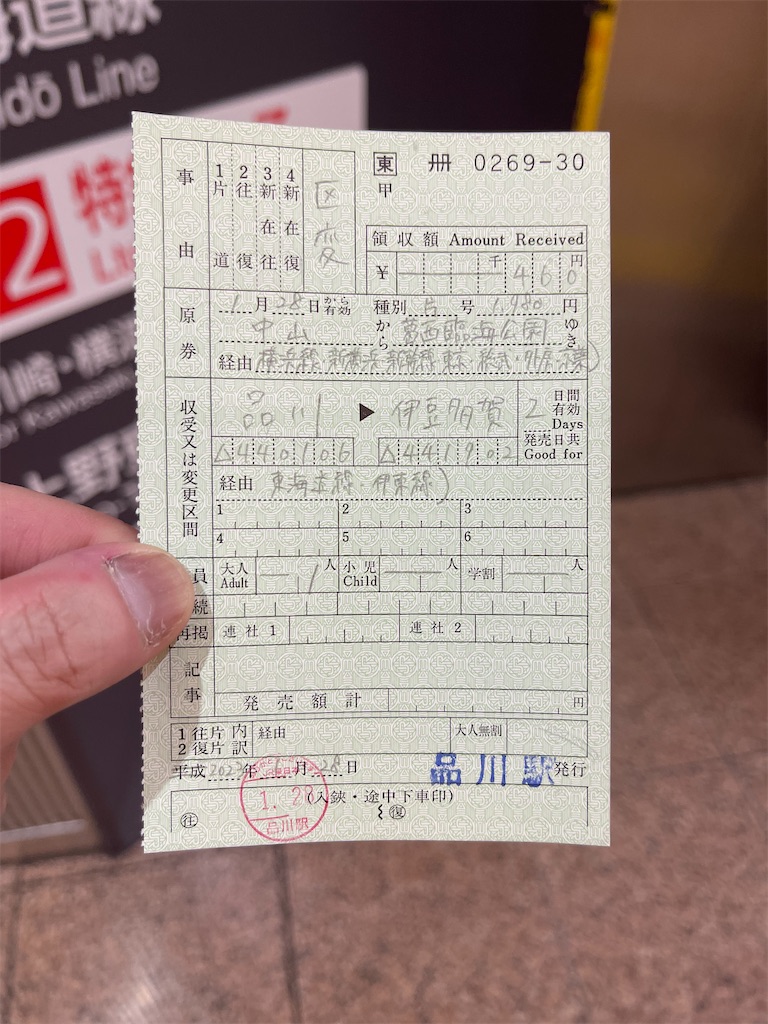 海道線
dō Line
2
特
Li
川崎・横
上野
東 冊 0269-30
甲
事由
1片道
2往復
3新在往
4新在復
区変
領収額 Amount Received
¥ 千 460 円
原券
1月28日から有効 種別 片 号 1,980 円
中山 から 葛西臨海公園 ゆき
経由 横浜線・新横浜・新幹線・東京
収受又は変更区間
品川 ▶ 伊豆多賀 2 日間有効 Days
△440106 △441902 発売日共 Good for
経由 東海道線・伊東線)
1 2 3
4 5 6
員 大人 Adult 1人 小児 Child 人 学割 人
続
再掲 連社1 連社2
記事
発売額計 円
1往片 2復片 内訳 経由 大人無割
平成 2023年 1月28日 品川駅 発行
1.28
品川駅
(入鋏・途中下車印)
往 復